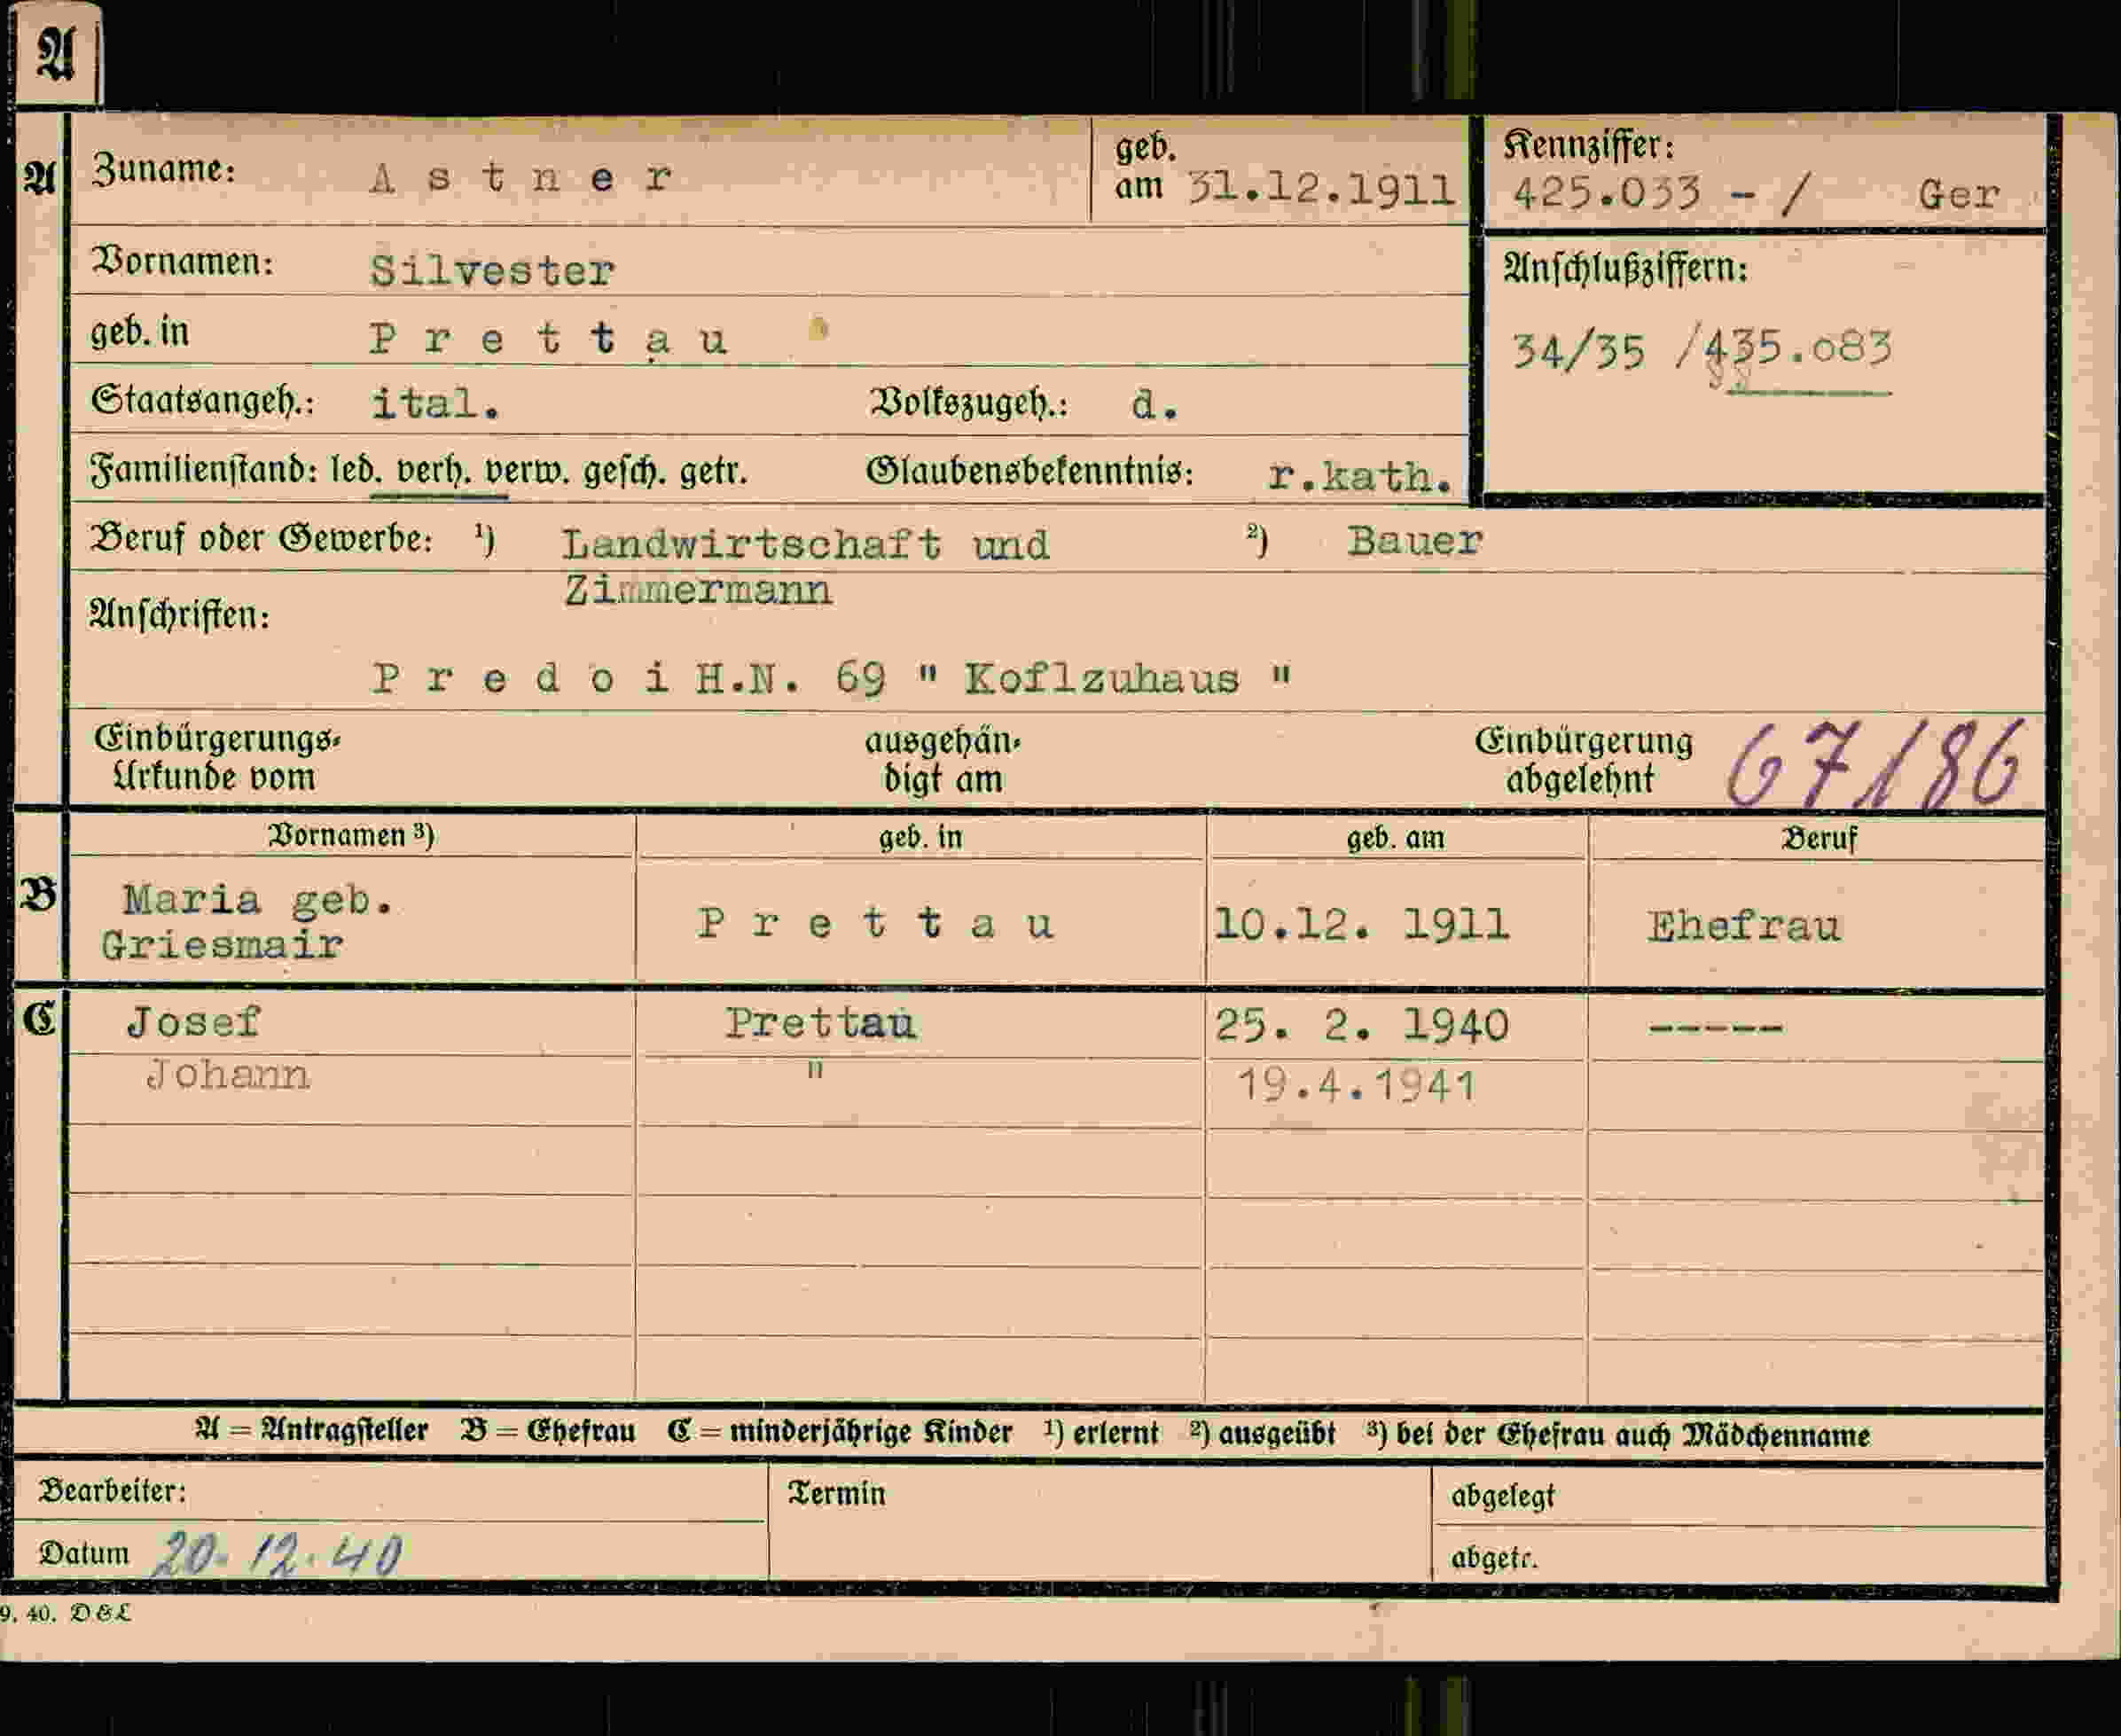 A
A Zuname: Astner geb. am 31.12.1911
Kennziffer: 425.033 - / Ger
Vornamen: Silvester
Anschlußziffern:
34/35 /435.083
geb. in Prettau
Staatsangeh.: ital. Volkszugeh.: d.
Familienstand: led. verh. verw. gesch. getr. Glaubensbekenntnis: r.kath.
Beruf oder Gewerbe: ¹) Landwirtschaft und ²) Bauer
Zimmermann
Anschriften:
Predoi H.N. 69 " Koflzuhaus "
Einbürgerungs- ausgehän- Einbürgerung 67/86
Urkunde vom digt am abgelehnt
Vornamen ³) geb. in geb. am Beruf
B Maria geb.
Griesmair Prettau 10.12. 1911 Ehefrau
C Josef Prettau 25. 2. 1940 -----
Johann " 19.4.1941
A = Antragsteller B = Ehefrau C = minderjährige Kinder ¹) erlernt ²) ausgeübt ³) bei der Ehefrau auch Mädchenname
Bearbeiter: Termin abgelegt
Datum 20.12.40 abgetr.
9. 40. D&L